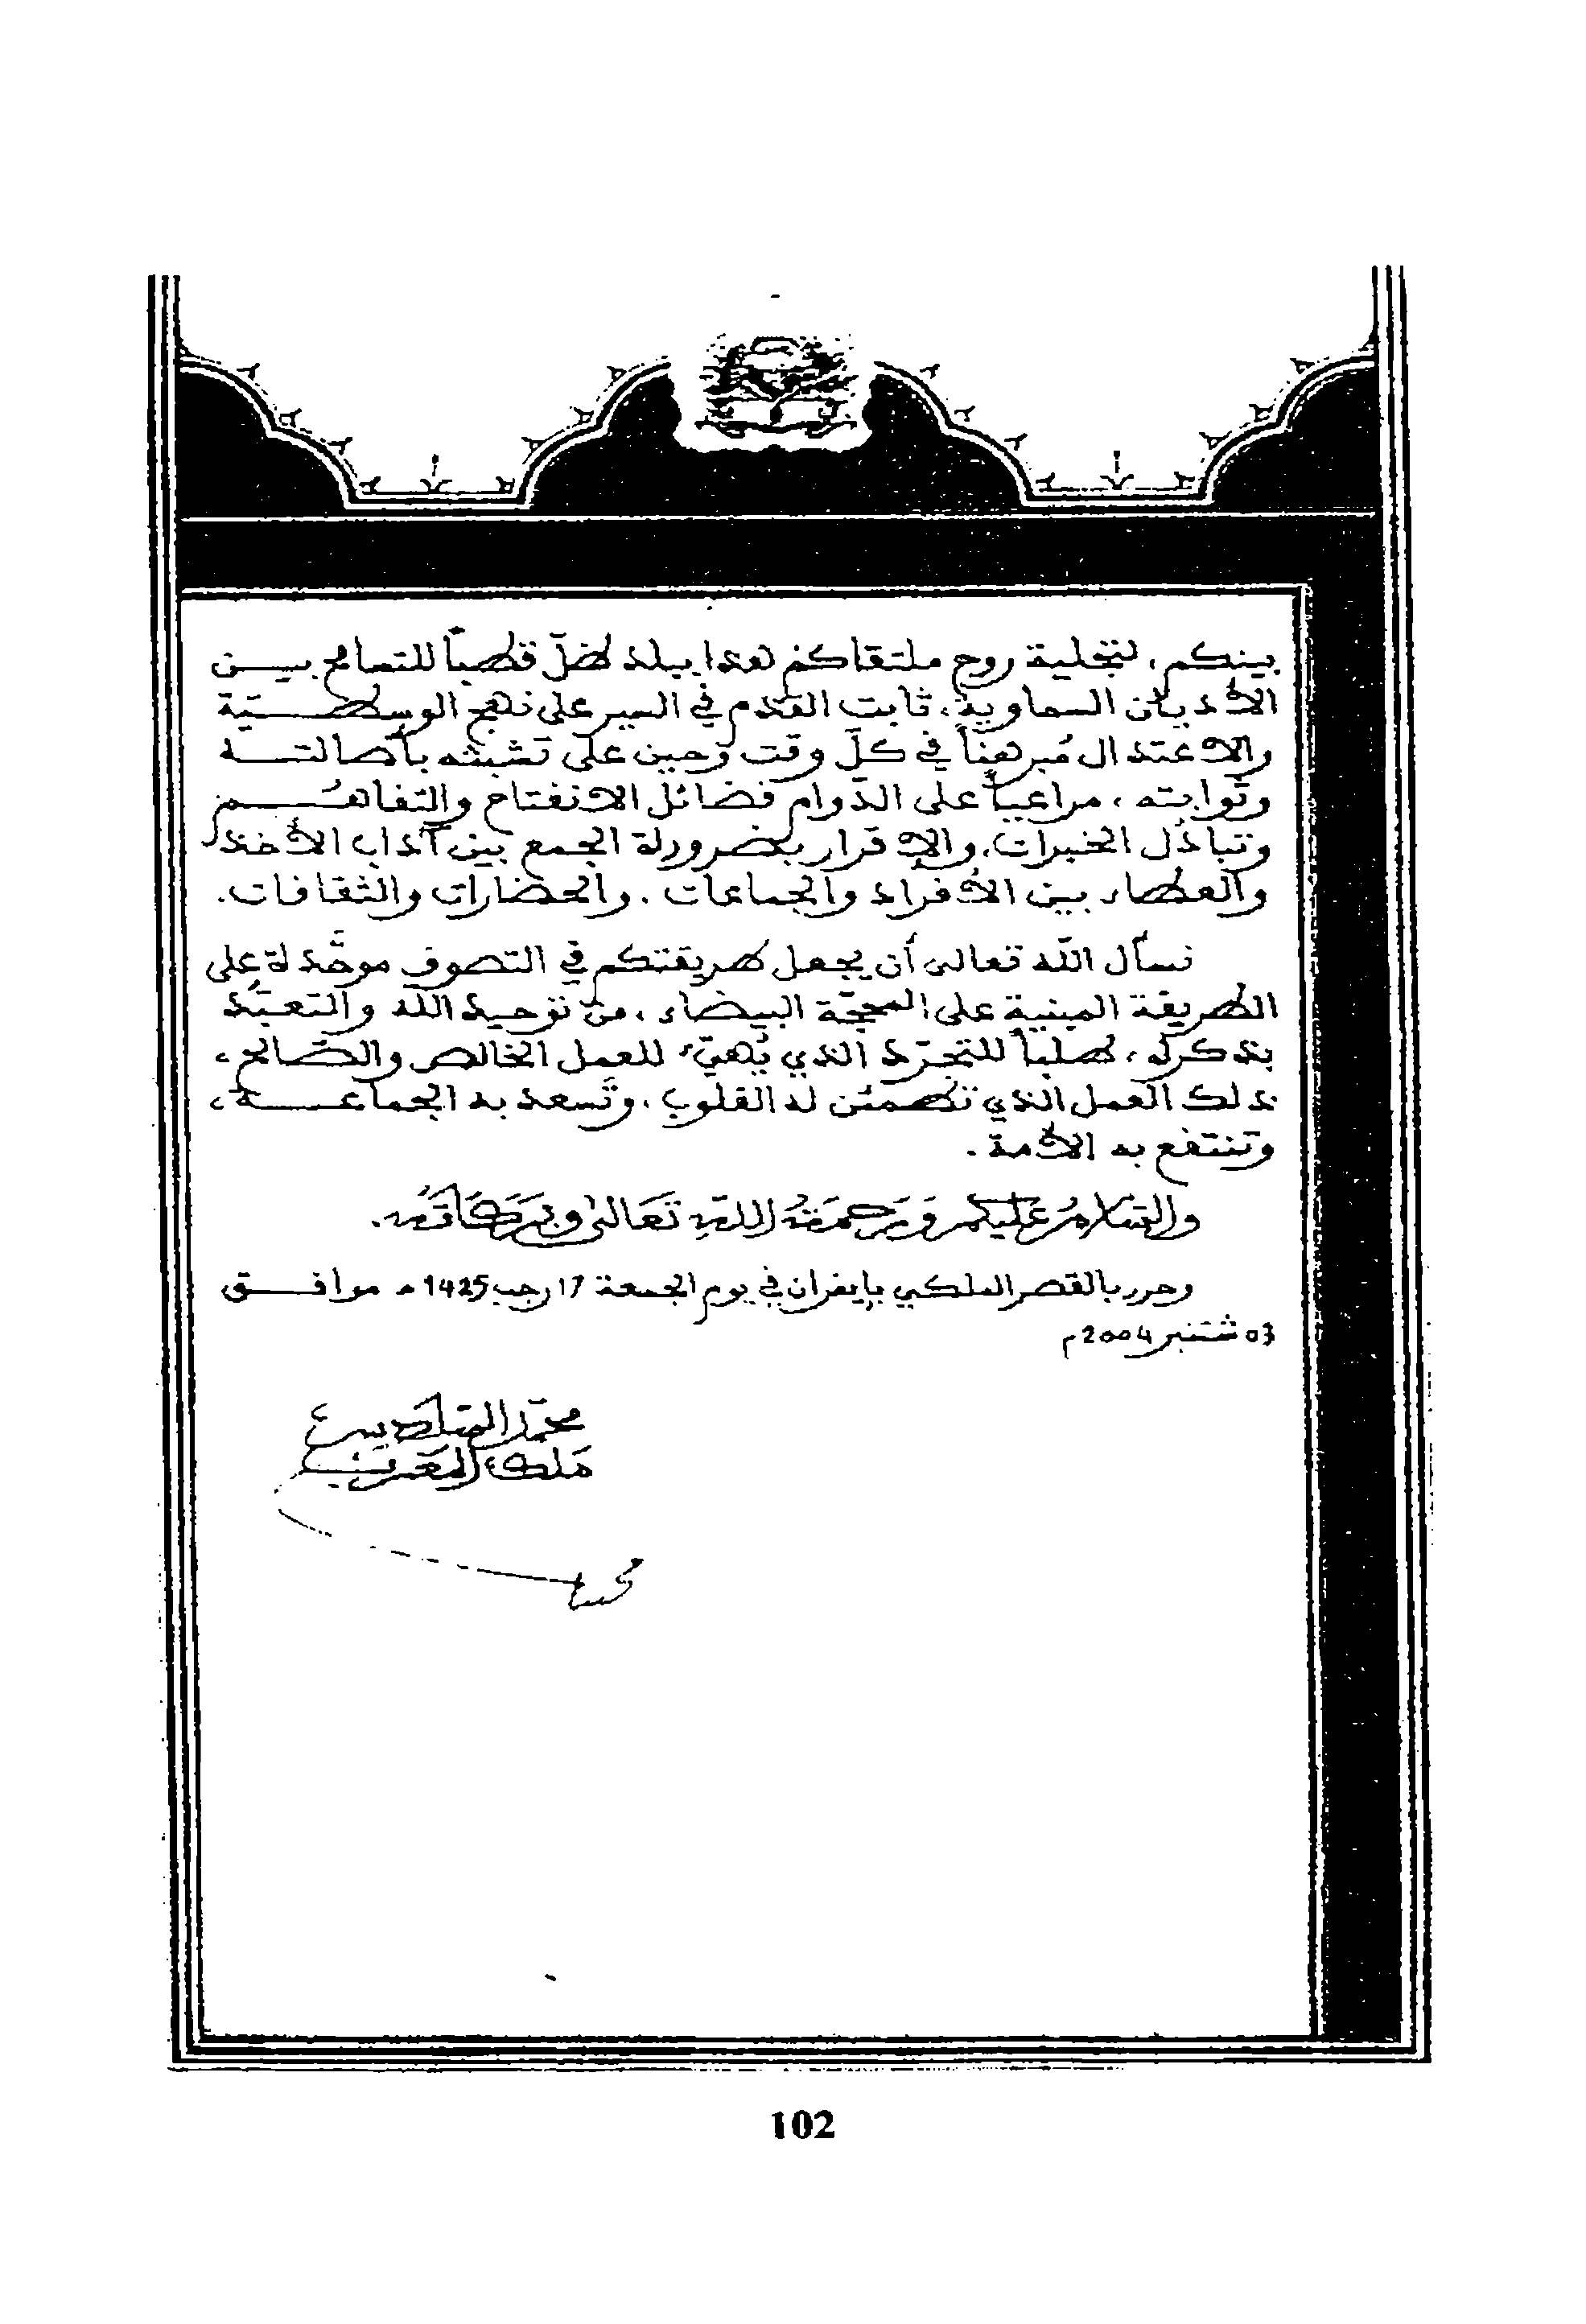 بينكم، لتجلية روح ملتقاكم هذا ببلد ظلّ قطباً للتسامح بيـــن
الأديان السماوية، ثابت القدم في السير على نهج الوسطـــيّة
والاعتدال مُبرهناً في كلّ وقت وحين على تشبثه بأصالتـــه
وثوابته، مراعياً على الدّوام فضائل الانفتاح والتفاهـــم
وتبادُل الخبرات، والإقرار بضرورة الجمع بين آداب الأخذ
والعطاء بين الأفراد والجماعات، والحضارات والثقافات.
نسأل الله تعالى أن يجعل طريقتكم في التصوف موحَّدة على
الطريقة المبنية على المحجّة البيضاء، من توحيد الله والتعبّد
بذكره، طلباً للتجرّد الذي يُهيّء للعمل الخالص والصّالح،
ذلك العمل الذي تطمئن له القلوب، وتَسعد به الجماعـــة،
وتنتفع به الأمة.
والسلام عليكم ورحمة الله تعالى وبركاته.
وحرر بالقصر الملكي بإيفران في يوم الجمعة 17 رجب 1425 ه موافـــق
03 شتنبر 2004م
محمد السادس
ملك المغرب
102